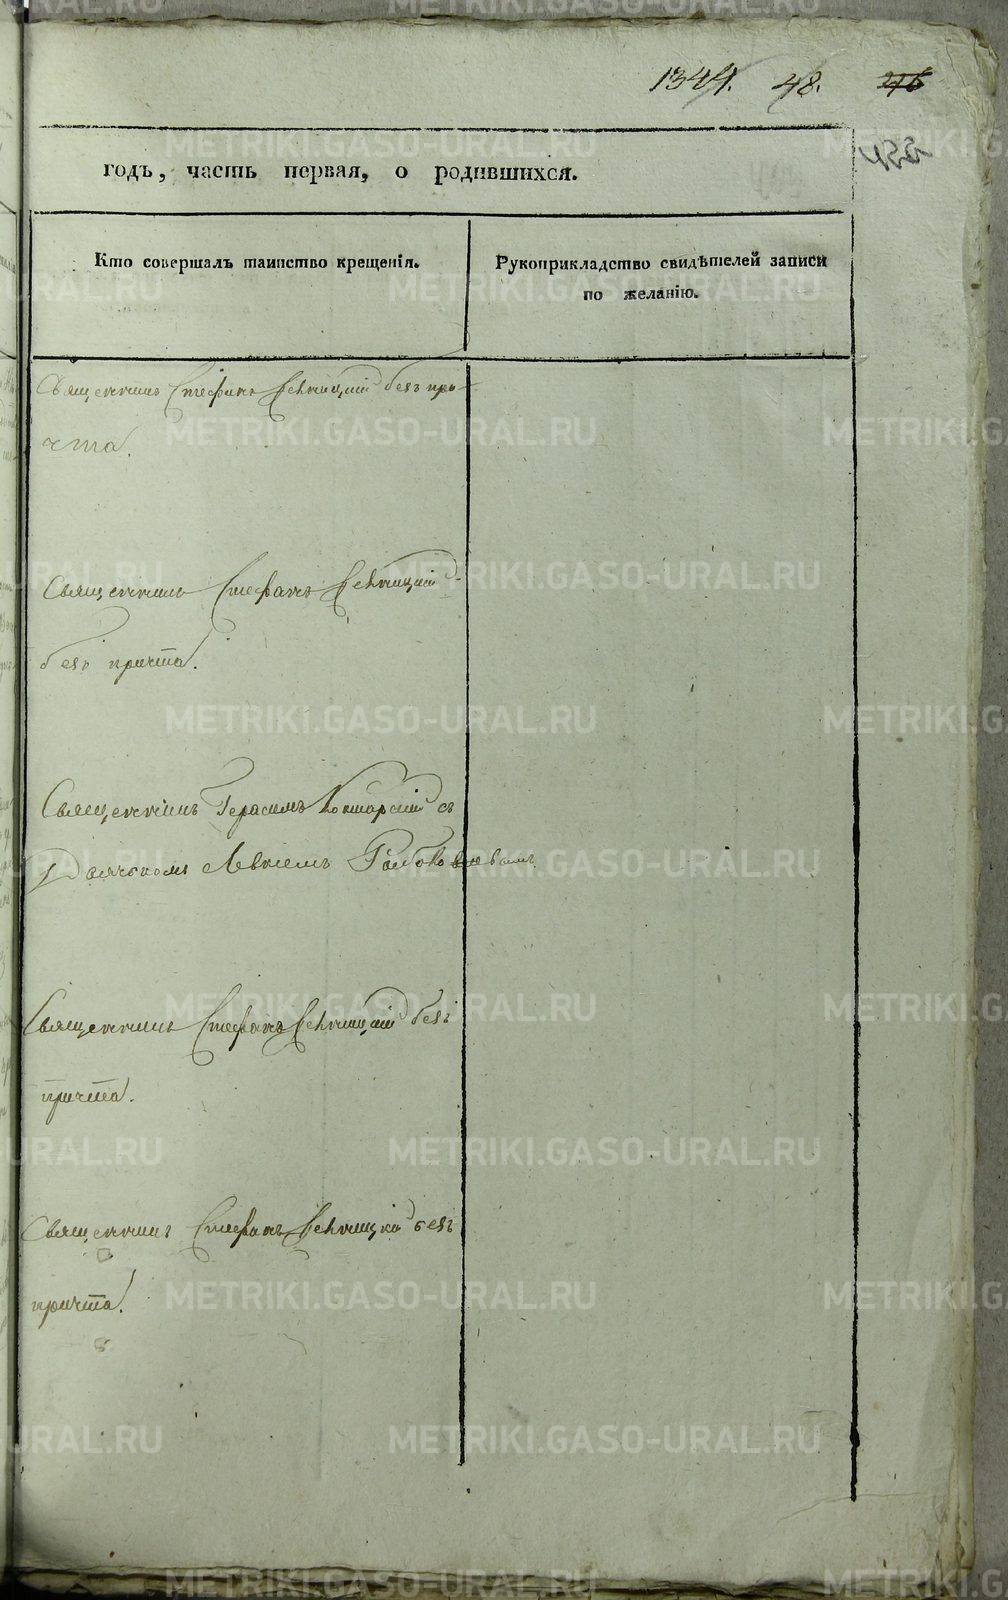 1344. 48. 46
годъ, часть первая, о родившихся.
Кто совершалъ таинство крещенія.
Рукоприкладство свидѣтелей записи
по желанію.
Священникъ Стефанъ безъ при-
чта.
Священникъ Стефанъ
безъ причта.
Священникъ Герасимъ съ
Дьячкомъ
Священникъ Стефанъ безъ
причта.
Священникъ Стефанъ безъ
причта.
METRIKI.GASO-URAL.RU